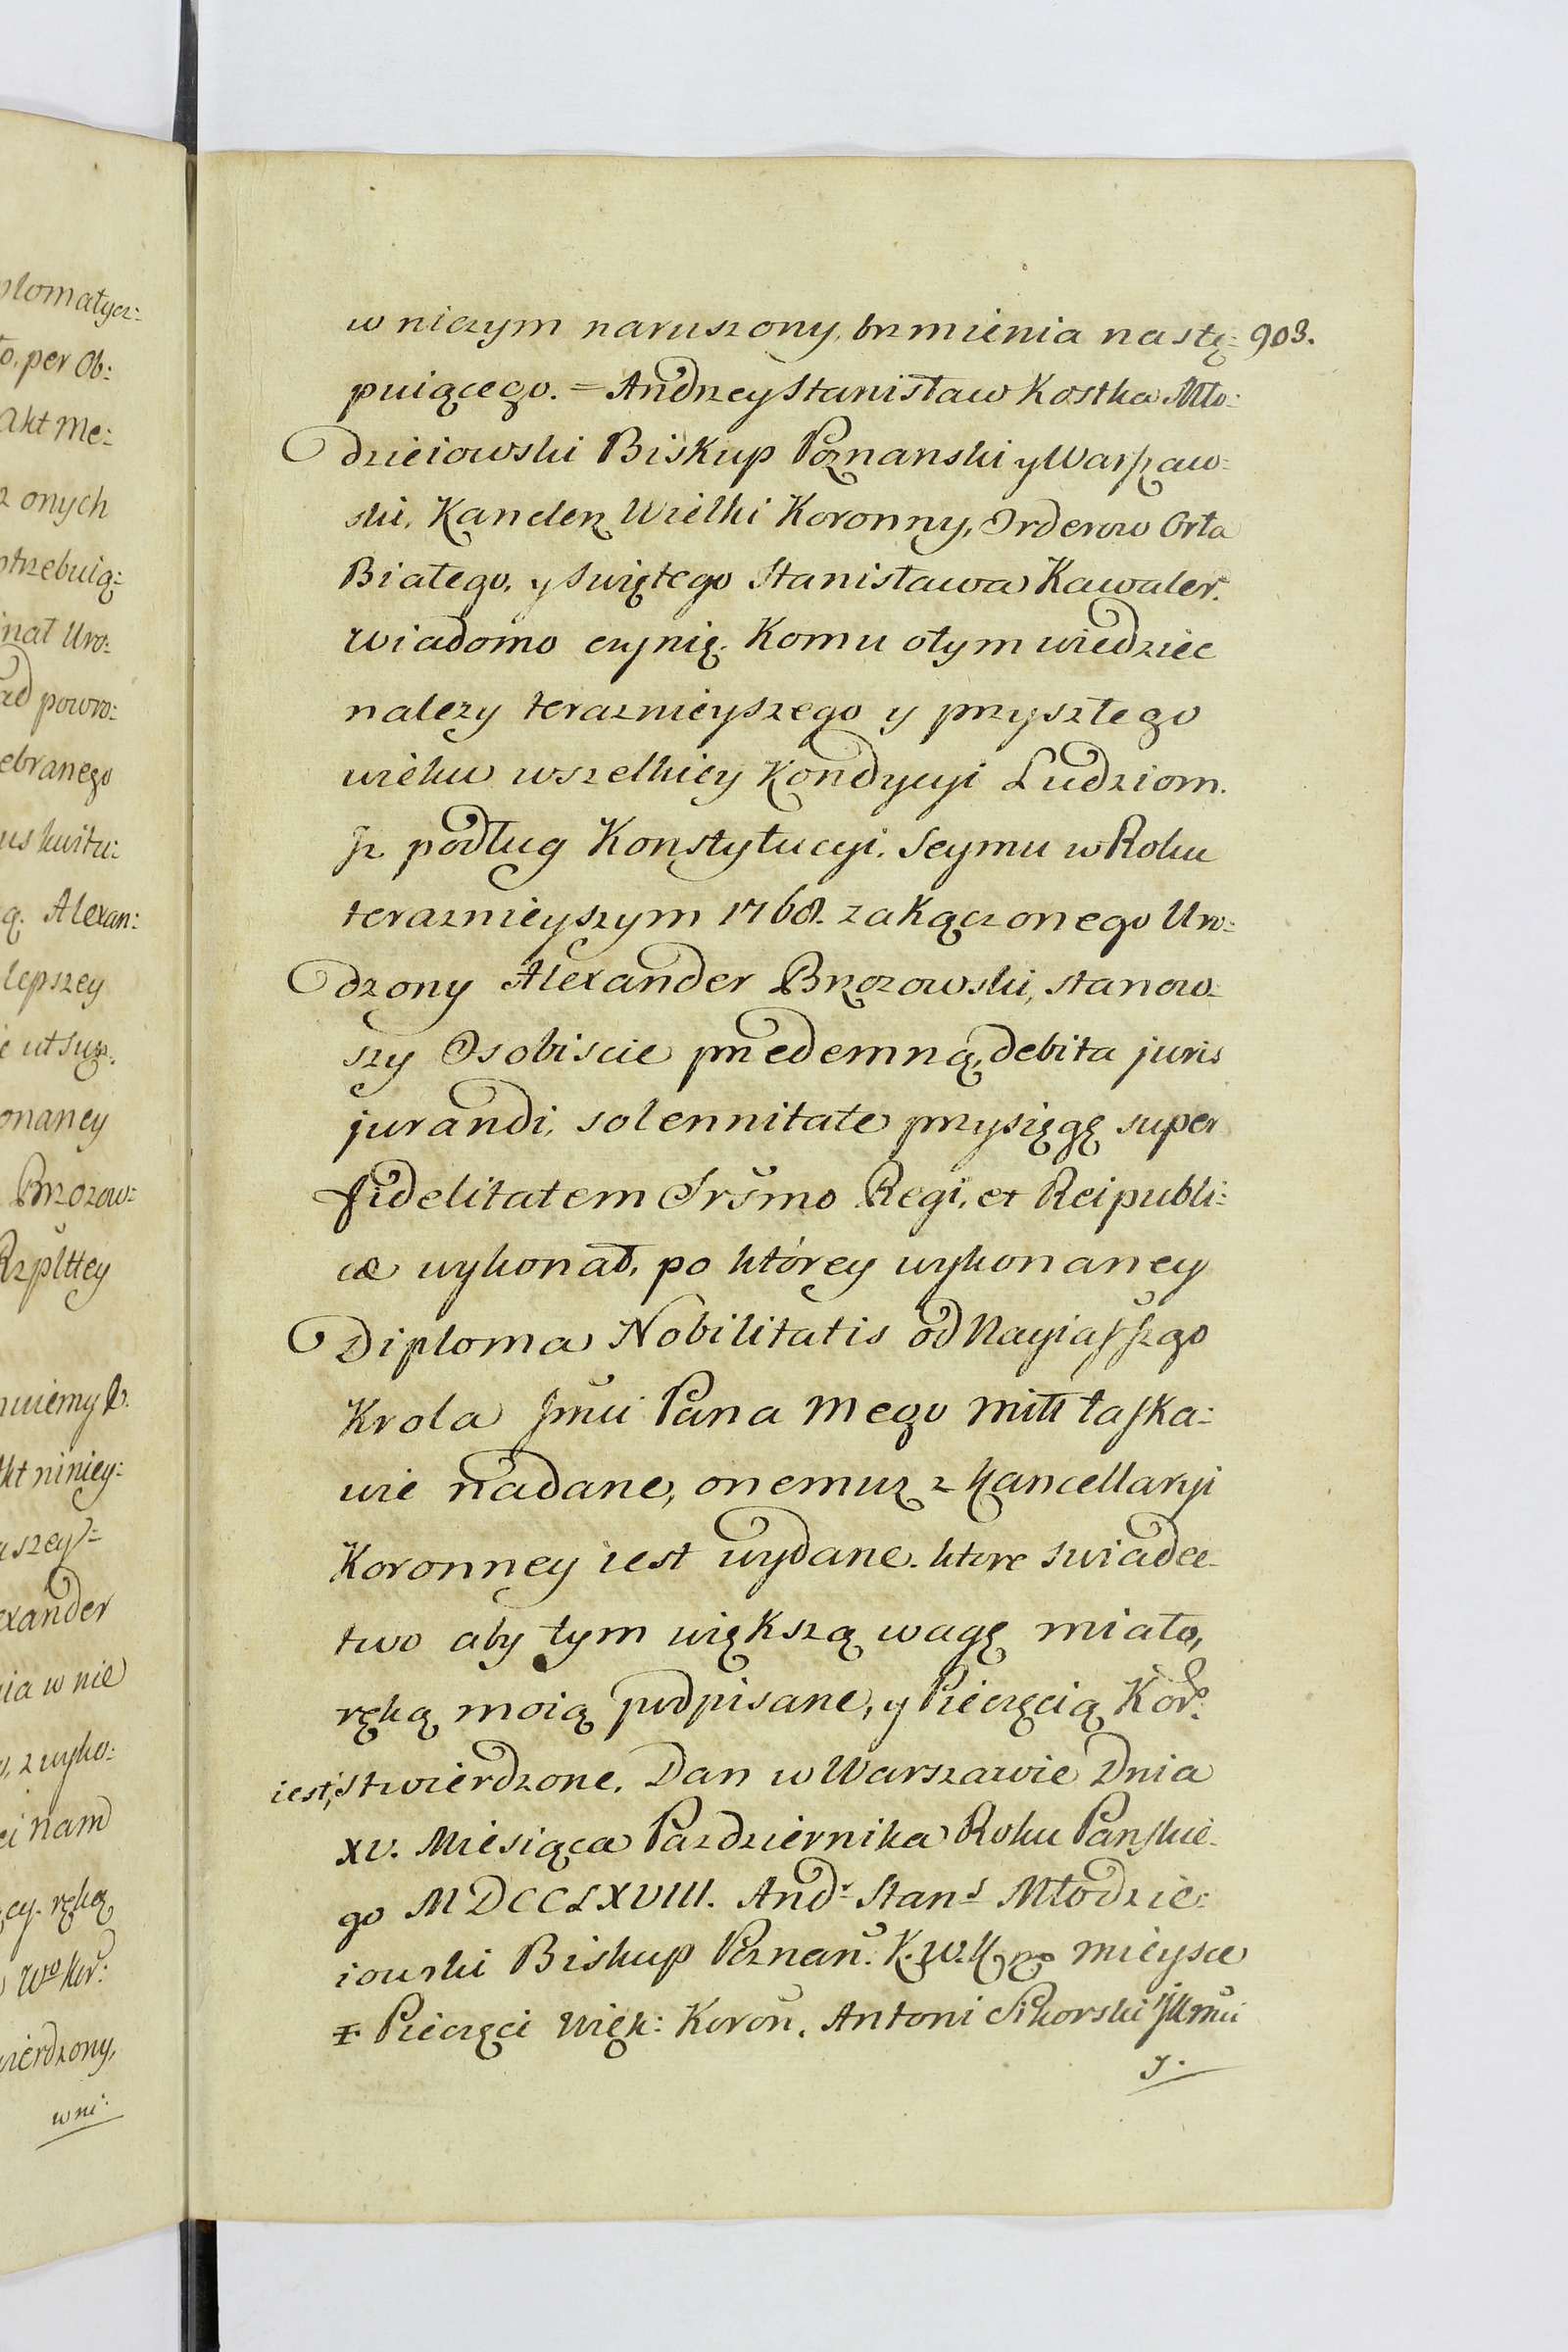 plomatycz:
o, per Ob:
Akt Me:
z onych
otrzebuią:
inał Uro:
ad powro:
ebranego
us kwitu:
ą. Alexan:
lepszey
e ut sup.
onaney
Brzozow:
Rzplttey
Akt niniey:
uszey:
exander
nia w nie
o, z wyko:
ei nam
ey. ręką
Wo Kor:
wierdzony,
w ni:
w niczym naruszony, brzmienia nastę: 903.
puiącego. = Andrzey Stanisław Kostka Mło:
dzieiowski Biskup Poznanski y Warszaw:
ski, Kanclerz Wielki Koronny, Orderow Orła
Białego, y Swiętego Stanisława Kawaler.
Wiadomo czynię. Komu otym wiedziec
nalezy teraznieyszego y przyszłego
wieku wszelkiey Kondycyi Ludziom.
Jz podług Konstytucyi. Seymu w Roku
teraznieyszym 1768. zakączonego Uro:
dzony Alexander Brzozowski, stanow:
szy Osobiscie przedemną, debita juris
jurandi, solennitate przysięgę super
fidelitatem Srŝmo Regi, et Reipubli:
cæ wykonał, po którey wykonaney
Diploma Nobilitatis od Nayiaśszgo
Krola Jmĉi Pana mego miłł łaska:
wie nadane, onemuz z Kancellaryi
Koronney iest wydane. ktore swiadec-
two aby tym większą wagę miało,
ręką moią podpisane, y Pieczęcią Kor:
iest, stwierdzone. Dan w Warszawie Dnia
XV. Miesiąca Pazdziernika Roku Panskie-
go MDCCLXVIII. Andr Stans Młodzie:
iowski Biskup Poznań. K. W. K. mieysce
Pieczęci Więk: Koroń. Antoni Sikorski JKmĉi
y.